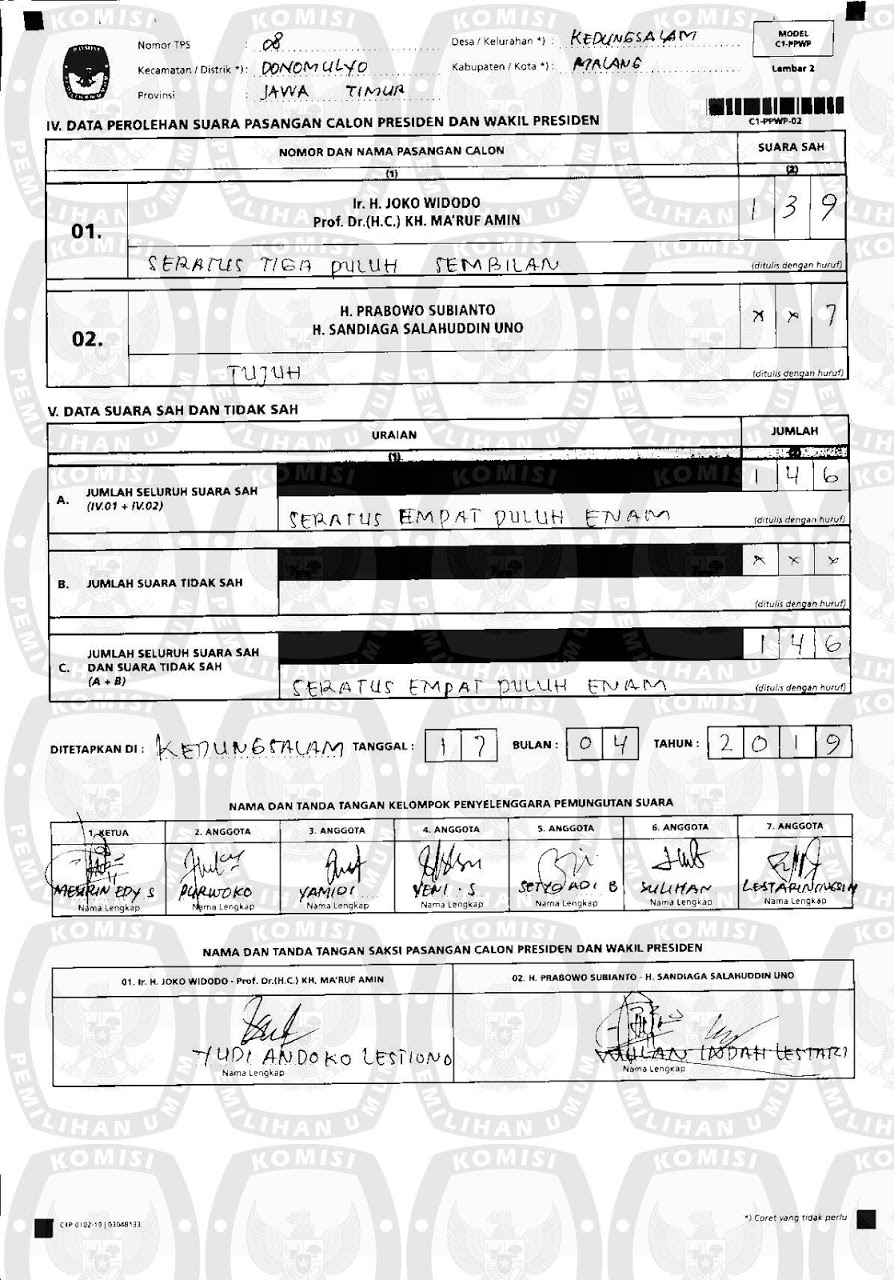 KOMISI
PEMILIHAN UMUM
Nomor TPS : 08
Desa / Kelurahan *) : KEDUNGSALAM
Kecamatan / Distrik *) : DONOMULYO
Kabupaten / Kota *) : MALANG
Provinsi : JAWA TIMUR
MODEL
C1-PPWP
Lembar 2
C1-PPWP-02
IV. DATA PEROLEHAN SUARA PASANGAN CALON PRESIDEN DAN WAKIL PRESIDEN
NOMOR DAN NAMA PASANGAN CALON SUARA SAH
(1) (2)
01. Ir. H. JOKO WIDODO
Prof. Dr.(H.C.) KH. MA'RUF AMIN 1 3 9
SERATUS TIGA PULUH SEMBILAN (ditulis dengan huruf)
02. H. PRABOWO SUBIANTO
H. SANDIAGA SALAHUDDIN UNO x x 7
TUJUH (ditulis dengan huruf)
V. DATA SUARA SAH DAN TIDAK SAH
URAIAN JUMLAH
(1) (2)
A. JUMLAH SELURUH SUARA SAH
(IV.01 + IV.02) 1 4 6
SERATUS EMPAT PULUH ENAM (ditulis dengan huruf)
B. JUMLAH SUARA TIDAK SAH x x x
(ditulis dengan huruf)
C. JUMLAH SELURUH SUARA SAH
DAN SUARA TIDAK SAH
(A + B) 1 4 6
SERATUS EMPAT PULUH ENAM (ditulis dengan huruf)
DITETAPKAN DI : KEDUNGSALAM TANGGAL : 1 7 BULAN : 0 4 TAHUN : 2 0 1 9
NAMA DAN TANDA TANGAN KELOMPOK PENYELENGGARA PEMUNGUTAN SUARA
1. KETUA 2. ANGGOTA 3. ANGGOTA 4. ANGGOTA 5. ANGGOTA 6. ANGGOTA 7. ANGGOTA
EDY S PURWOKO YAMIDI YENI . S SETYO ADI B SULIHAN LESTARININGSIH
Nama Lengkap Nama Lengkap Nama Lengkap Nama Lengkap Nama Lengkap Nama Lengkap Nama Lengkap
NAMA DAN TANDA TANGAN SAKSI PASANGAN CALON PRESIDEN DAN WAKIL PRESIDEN
01. Ir. H. JOKO WIDODO - Prof. Dr.(H.C.) KH. MA'RUF AMIN 02. H. PRABOWO SUBIANTO - H. SANDIAGA SALAHUDDIN UNO
YUDI ANDOKO LESTIONO INDAH LESTARI
Nama Lengkap Nama Lengkap
*) Coret yang tidak perlu
C1P 0102-19 | 03048133